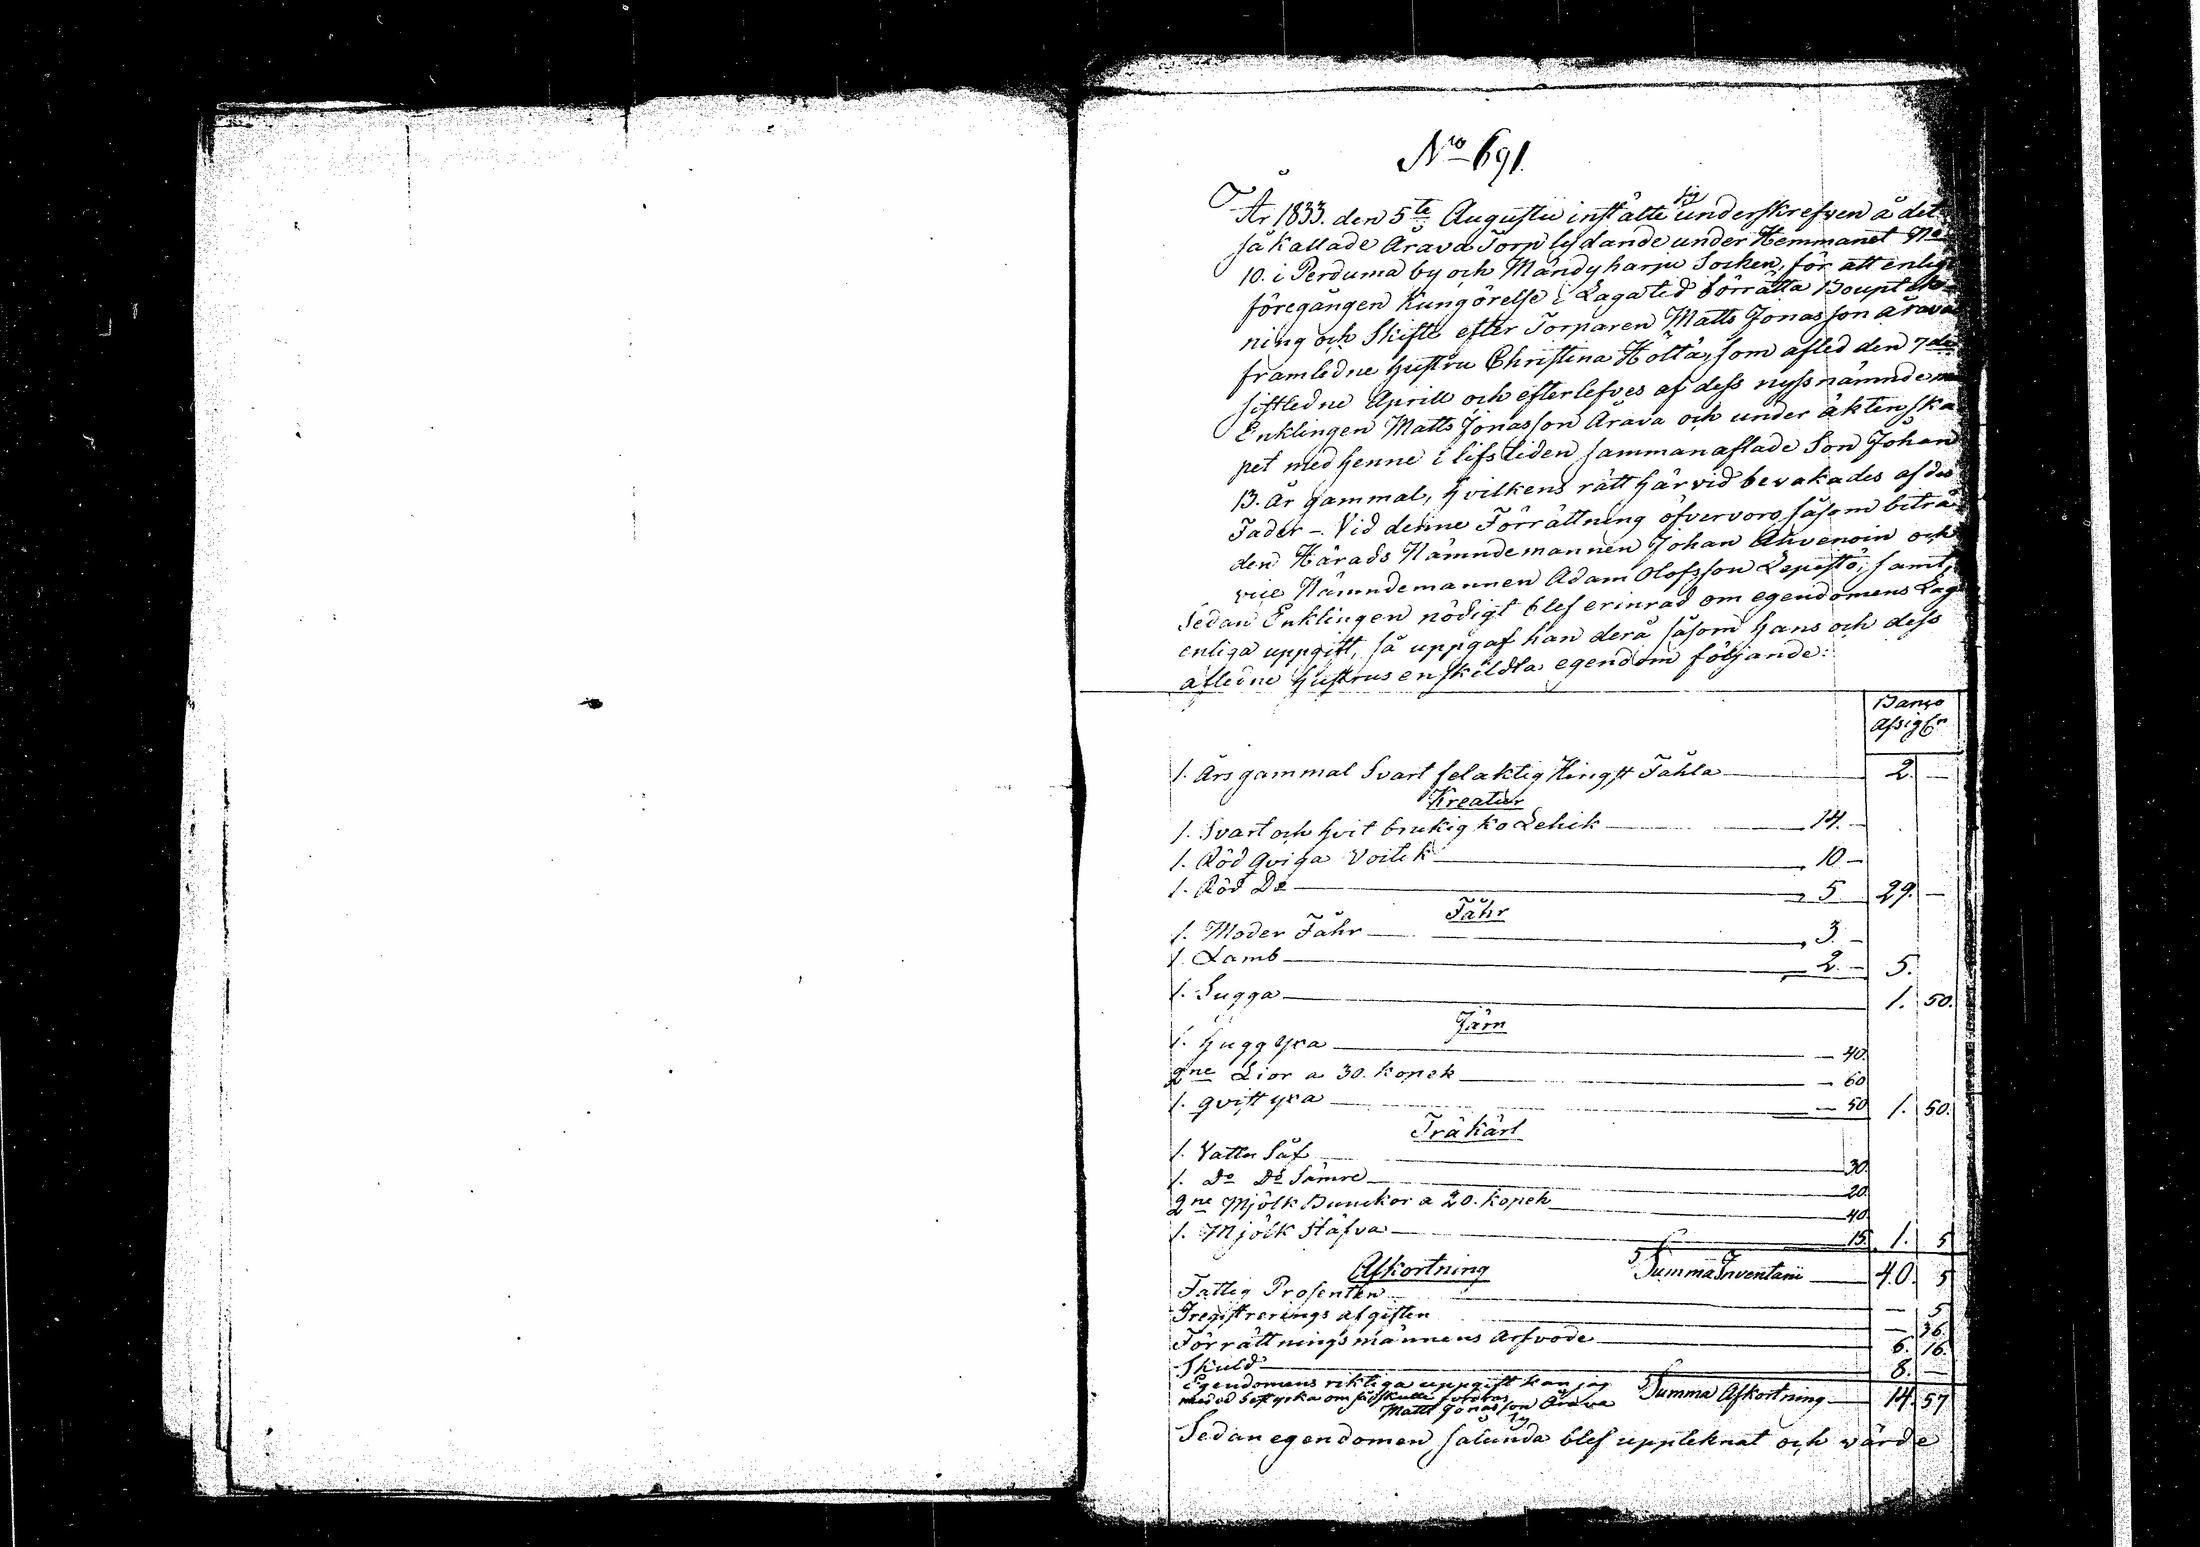 No 691.
År 1833. den 5te Augustii instälte sig underskrefven å det
så kallade Arava Torp lydande under Hemmanet No
10. i Perduma by och Mändyharju Socken, för att enligt
föregången Kungörelse i Laga tid förrätta Boupptek-
ning och Skifte efter Torparen Matts Jonasson Arava
framledne hustru Christina Höltä, som afled den 7de
sistledne Aprill och efterlefves af dess nyssnämnde
Enklingen Matts Jonasson Arava och under äktenska
pet med henne i lifstiden sammanaflade Son Johan
13. år gammal, hvilkens rätt härvid bevakades af des
Fader -. Vid denne Förrättning öfvervoro såsom biträ
den Härads Nämndemannen Johan Ahvenoin och
vice Nämndemannen Adam Olofsson Lepistö, samt,
Sedan Enklingen nödigt blef erinrad om egendomens Lag
enliga uppgift, så uppgaf han derå såsom hans och dess
afledne hustrus enskildta egendom följande:
Banco
Assigr
1. Årsgammal Svart felaktig Hingst Fåhla 2. —
Kreatur
1. Svart och hvit brukig ko Lehik 14. —
1. Röd Qviga Voitik 10 —
1. Röd Do 5 29. —
Fåhr
1. Moder Fåhr 3. —
1. Lamb 2. — 5.
1. Sugga 1. 50.
Järn
1. hugg yxa — 40.
2ne Lior a 30. kopek — 60
1. qvist yxa — 50 1. 50.
Träkärl
1. Vattu Såf 30.
1. Do Do Sämre 20
2ne Mjölk Bunckor a 20. kopek 40.
1. Mjölk Stäfva 15. 1. 5
Summa Inventarii 40. 5
Afkortning
Fattig Prosenten — 5
Iregistrerings afgiften — 36.
Förrättningsmännens Arfvode 6. 16.
Skuld 8.
Egendomens riktiga uppgift kan jag
med ed bestyrka om så skulle fordras
Matts Jonasson Arava
Summa Afkortning 14. 57
Sedan egendomen sålunda blef uppteknat och värde